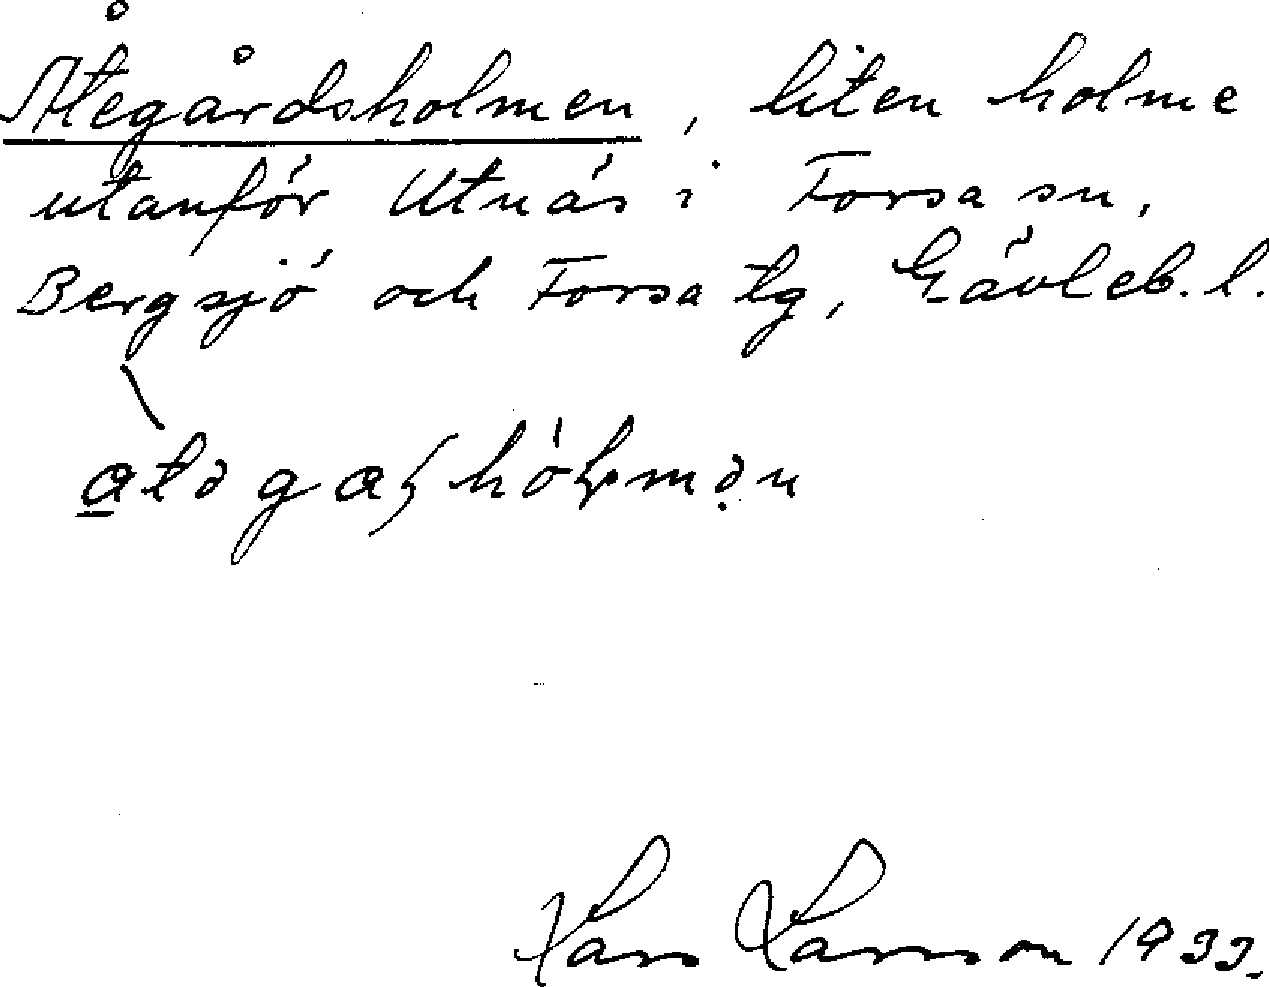 Åtegårdsholmen, liten holme
utanför Utnäs i Forsa sn,
Bergsjö och Forsa tg, Gävleb. l.
Lars Larsson 1933.